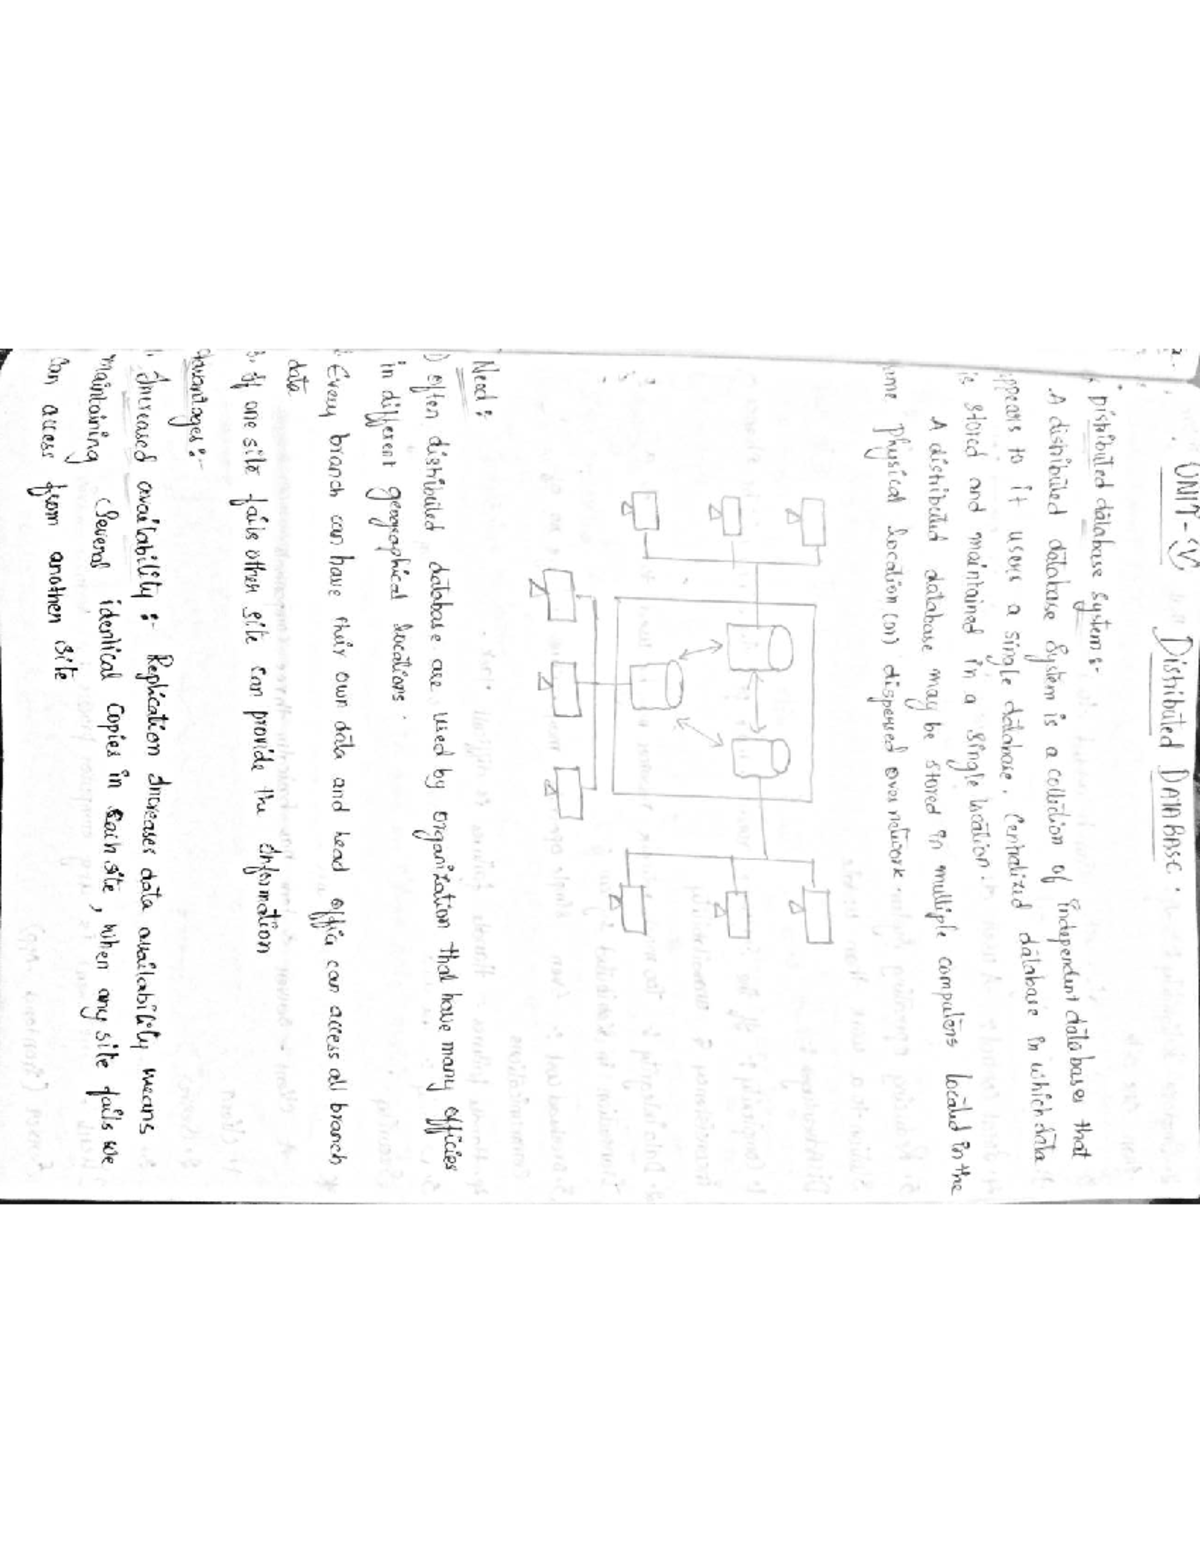 UNIT-IV
Distributed DATABASE.
Distributed database system:-
A distributed database system is a collection of independent databases that
appears to it users a single database. Centralized database in which data
is stored and maintained in a single location.
A distributed database may be stored in multiple computers located in the
same physical location (or) dispersed over network.
Need:-
1) often distributed database are used by organization that have many officies
in different geographical locations.
2. Every branch can have their own data and head office can access all branch
data
3. If one site fails other site can provide the information
Advantages:-
1. Increased availability:- Replication increases data availability means
maintaining several identical copies in each site, when any site fails we
can access from another site